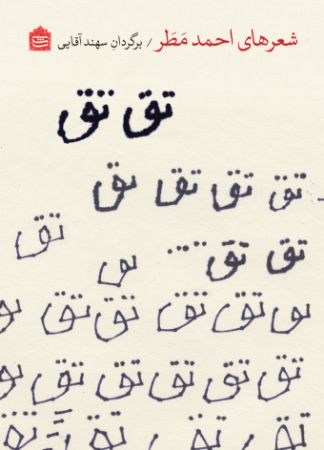 شعرهای احمد مَطَر / برگردانِ سهند آقایی
تق تق
تق تق تق تق
تق تق ... تق
تق تق تق تق
تق تق تق تق تق
تق تق تق تق